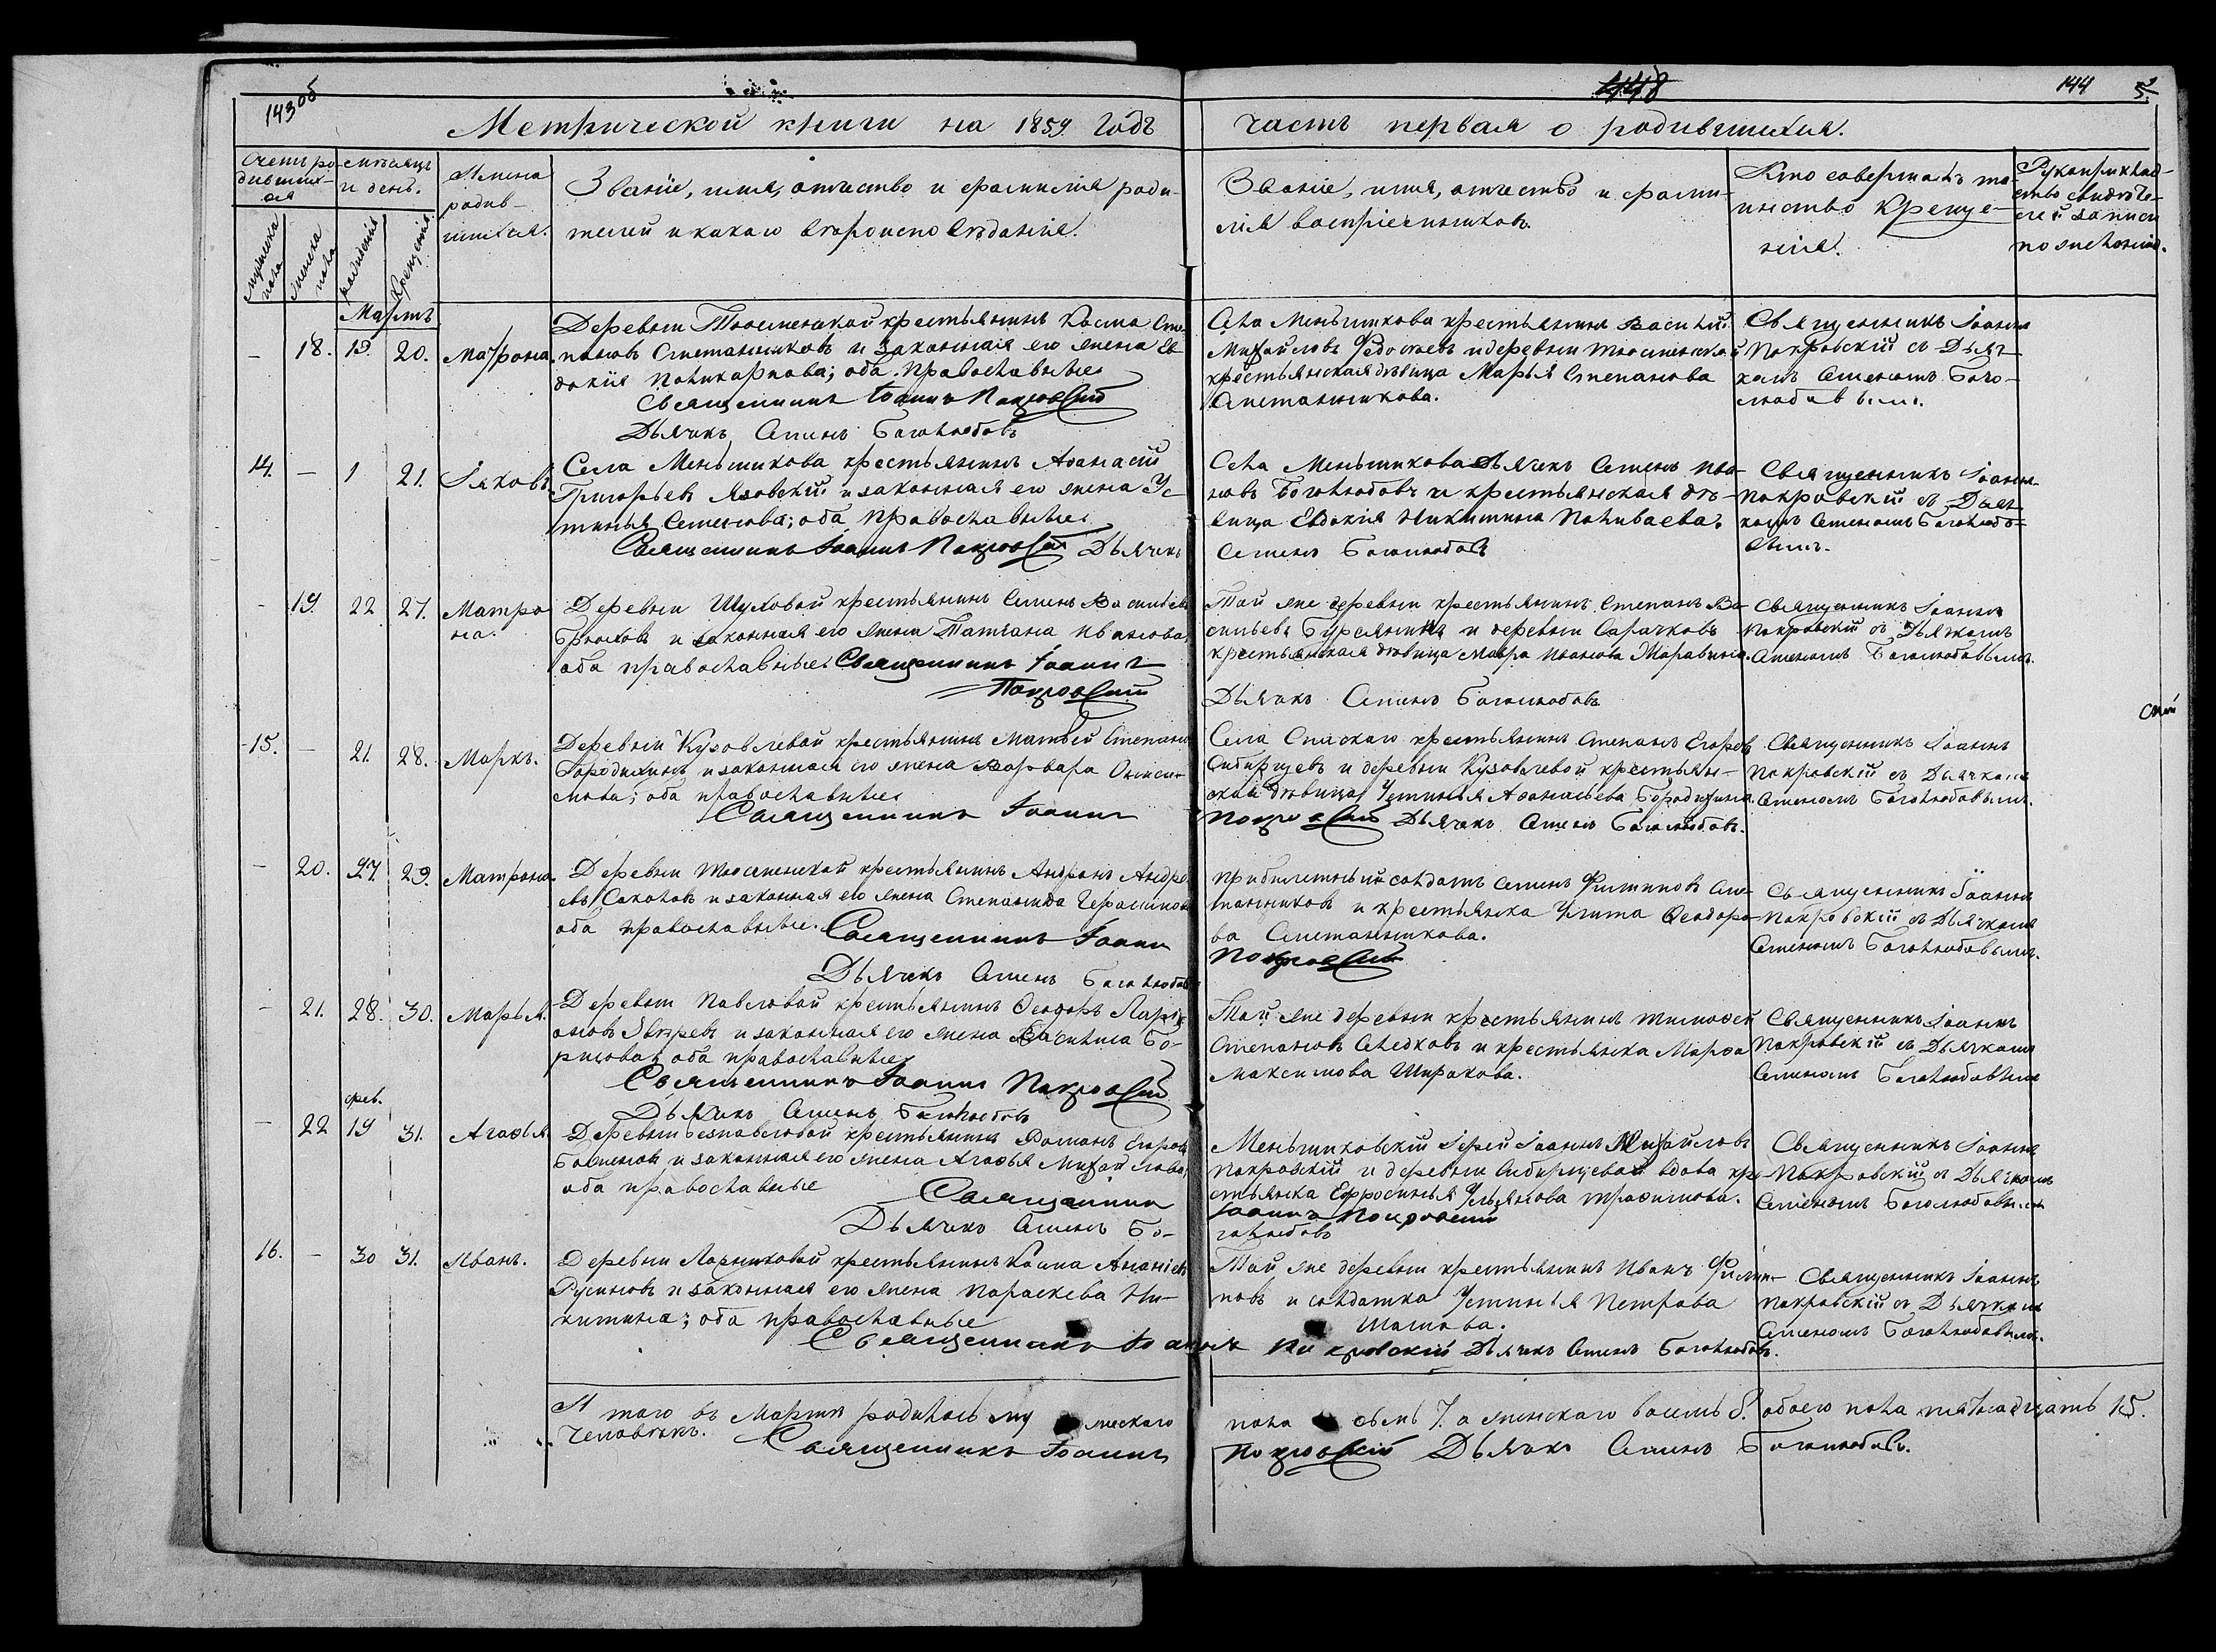 143 об
448
144
Метрической книги на 1859 годъ часть первая о родившихся.
Счетъ родившихся
мѣсяцъ и день.
Имена родившихся.
Званіе, имя, отчество и фамилія родителей и какого вѣроисповѣданія.
Званіе, имя, отчество и фамилія воспріемниковъ.
Кто совершалъ таинство крещенія.
Рукоприкладство свидѣтелей записи по желанію.
мужеска пола
женска пола
рожденія
крещенія.
Мартъ
– 18. 19. 20. Матрона.
Деревни Тюменской крестьянинъ Косма Сте-
пановъ Сметанниковъ и законная его жена Ев-
докія Поликарпова; оба православные
Священникъ Іоаннъ Покровскій
Дьячекъ Семенъ Боголюбовъ
Села Меньшикова крестьянинъ Василій
Михайловъ Федосѣевъ и деревни Тюменской
крестьянская дѣвица Марья Степанова
Сметанникова.
Священникъ Іоаннъ
Покровскій съ Дьяч-
комъ Семеномъ Бого-
любовымъ.
14. – 1 21. Іяковъ.
Села Меньшикова крестьянинъ Аѳанасій
Григорьевъ Язовскій и законная его жена Ус-
тинья Семенова; оба православные.
Священникъ Іоаннъ Покровскій Дьячекъ
Села Меньшикова Дьячекъ Семенъ Ива-
новъ Боголюбовъ и крестьянская дѣ-
вица Евдокія Никитина Поливаева.
Семенъ Боголюбовъ
Священникъ Іоаннъ
Покровскій съ Дьяч-
комъ Семеномъ Боголюбо-
вымъ.
– 19. 22 27. Матро-
на.
Деревни Шуховой крестьянинъ Семенъ Васильевъ
Брюховъ и законная его жена Татіана Иванова
оба православные Священникъ Іоаннъ
Покровскій
Той же деревни крестьянинъ Степанъ Ва-
сильевъ и деревни
крестьянская дѣвица Мавра Иванова Жаравина.
Дьячекъ Семенъ Боголюбовъ
Священникъ Іоаннъ
Покровскій съ Дьячкомъ
Семеномъ Боголюбовымъ.
15. – 21. 28. Маркъ.
Деревни Кузовлевой крестьянинъ Матвей Степановъ
Бородихинъ и законная его жена Варвара Ониси-
мова; оба православные
Священникъ Іоаннъ
Села Спаскаго крестьянинъ Степанъ Егоровъ
Сибирцевъ и деревни Кузовлевой крестьян-
ская дѣвица Устинья Аѳанасьева Бородихина.
Покровскій Дьячекъ Семенъ Боголюбовъ.
Священникъ Іоаннъ
Покровскій съ Дьячкомъ
Семеномъ Боголюбовымъ.
– 20. 27. 29. Матрона.
Деревни Тюменской крестьянинъ Андронъ Андре-
евъ Соколовъ и законная его жена Степанида Герасимова
оба православные. Священникъ Іоаннъ
Дьячекъ Семенъ Боголюбовъ
прибилетный солдатъ Семенъ Филиповъ Сме-
танниковъ и крестьянка Улита Ѳеодоро-
ва Сметанникова.
Покровскій
Священникъ Іоаннъ
Покровскій съ Дьячкомъ
Семеномъ Боголюбовымъ.
– 21. 28. 30. Марья.
Деревни Павловой крестьянинъ Ѳеодоръ Ларі-
оновъ и законная его жена Василиса Бо-
рисова; оба православные
Священникъ Іоаннъ Покровскій
Дьячекъ Семенъ Боголюбовъ
Той же деревни крестьянинъ Тимоѳей
Степановъ Слѣдковъ и крестьянка Марѳа
Максимова Широкова.
Священникъ Іоаннъ
Покровскій съ Дьячкомъ
Семеномъ Боголюбовымъ
фев.
– 22 19 31. Агаѳья
Деревни Безпаловой крестьянинъ Романъ Егоровъ
и законная его жена Агаѳья Михайлова,
оба православные
Священникъ
Дьячекъ Семенъ Бо-
Меньшиковскій Іерей Іоаннъ Михайловъ
Покровскій и деревни Сибирцевой вдова кре-
стьянка Ефросинья Ульянова Трофимова.
Іоаннъ Покровскій
голюбовъ
Священникъ Іоаннъ
Покровскій съ Дьячкомъ
Семеномъ Боголюбовымъ
16. – 30 31. Иванъ.
Деревни Ларниковой крестьянинъ Косма Ананіевъ
Русиновъ и законная его жена Параскева Ни-
китина; оба православные
Священникъ Іоаннъ Покровскій Дьячекъ Семенъ Боголюбовъ.
Той же деревни крестьянинъ Иванъ Филип-
повъ и солдатка Устинья Петрова
Шатова.
Священникъ Іоаннъ
Покровскій съ Дьячкомъ
Семеномъ Боголюбовымъ.
И того въ Мартѣ родилось мужескаго пола семь 7. а женскаго восемь 8. обоего пола пятнадцать 15.
человѣкъ. Священникъ Іоаннъ Покровскій Дьячекъ Семенъ Боголюбовъ.